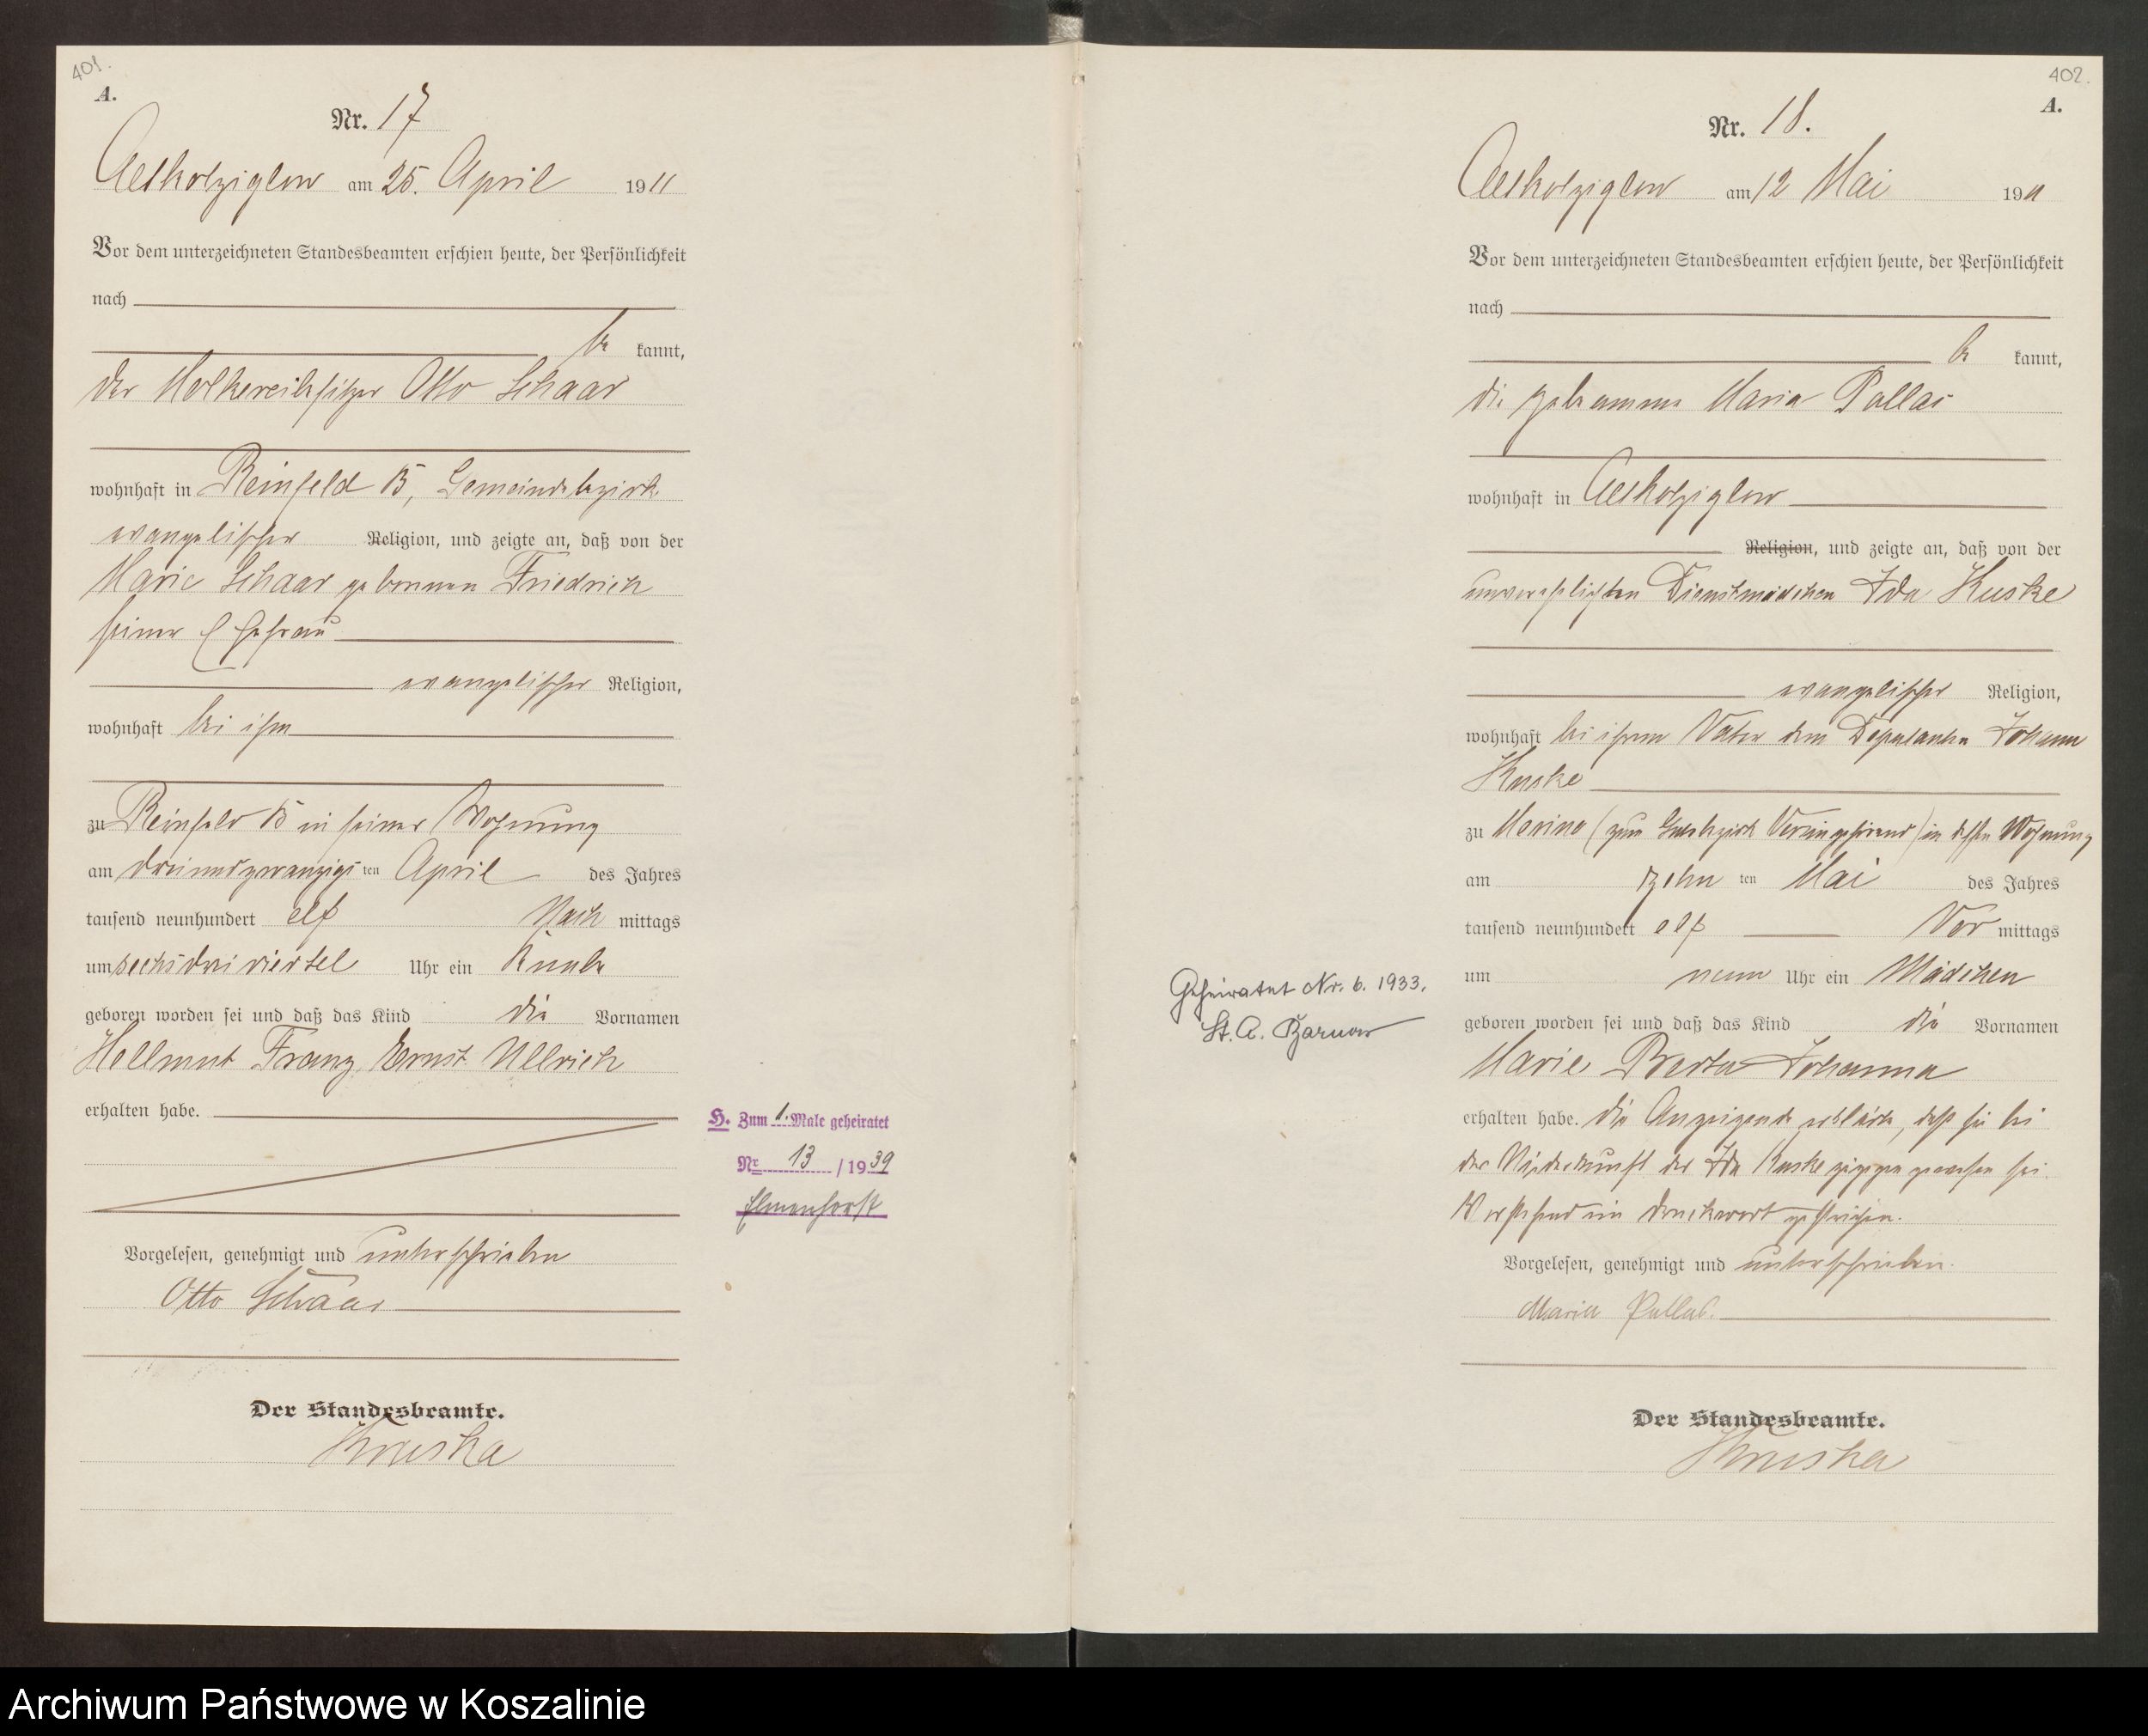 401.
A.
Nr. 17
Altkolziglow am 25. April 1911
Vor dem unterzeichneten Standesbeamten erschien heute, der Persönlichkeit
nach
be kannt,
der Molkereibesitzer Otto Schaar
wohnhaft in Reinfeld B, Gemeindebezirk
evangelischer Religion, und zeigte an, daß von der
Marie Schaar geborenen Friedrich
seiner Ehefrau
evangelischer Religion,
wohnhaft bei ihm
zu Reinfeld B in seiner Wohnung
am dreiundzwanzigs ten April des Jahres
tausend neunhundert elf Nach mittags
um sechsdreiviertel Uhr ein Knabe
geboren worden sei und daß das Kind die Vornamen
Hellmut Franz Ernst Ullrich
erhalten habe.
H. Zum 1. Male geheiratet
Nr 13 / 1939
Elmenhorst
Vorgelesen, genehmigt und unterschrieben
Otto Schaar
Der Standesbeamte.
Kruska
402.
A.
Nr. 18.
Altkolziglow am 12 Mai 1911
Vor dem unterzeichneten Standesbeamten erschien heute, der Persönlichkeit
nach
be kannt,
die Hebamme Maria Pallas
wohnhaft in Altkolziglow
Religion, und zeigte an, daß von der
unverehelichten Dienstmädchen Ida Kuske
evangelischer Religion,
wohnhaft bei ihrem Vater dem Deputanten Johann
Kuske
zu Merino (zum Gutsbezirk Versin gehörend) in dessen Wohnung
am zehn ten Mai des Jahres
tausend neunhundert elf Vor mittags
um neun Uhr ein Mädchen
geboren worden sei und daß das Kind die Vornamen
Marie Berta Johanna
erhalten habe. Die Anzeigende erklärte, daß sie bei
der Niederkunft der Ida Kuske zugegen gewesen sei.
Vorstehend ein Druckwort gestrichen.
Geheiratet Nr. 6. 1933.
St. A. Barnow
Vorgelesen, genehmigt und unterschrieben.
Maria Pallas.
Der Standesbeamte.
Kruska
Archiwum Państwowe w Koszalinie